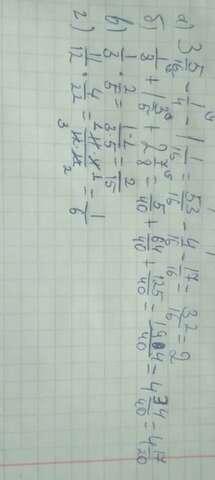 а) 3 5/16 - 1/4 - 1 1/16 = 53/16 - 4/16 - 17/16 = 32/16 = 2
б) 1/3 + 1 3/5 + 2 7/8 = 5/40 + 64/40 + 125/40 = 194/40 = 4 34/40 = 4 17/20
в) 1/3 · 2/5 = 1·2/3·5 = 2/15
г) 11/12 · 4/22 = 1/6